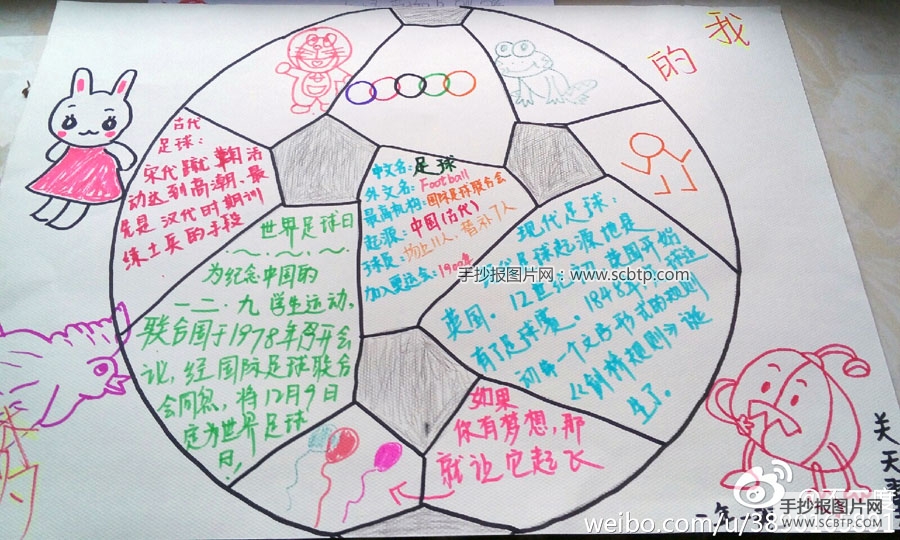 的我
古代
足球：
宋代蹴鞠活
动达到高潮、最
先是汉代时期训
练士兵的手段
中文名：足球
外文名：Football
最高机构：国际足球联合会
起源：中国(古代)
球员：场上11人、替补7人
加入奥运会：1900年
世界足球日
为纪念中国的
一二·九学生运动，
联合国于1978年召开会
议，经国际足球联合
会同意，将12月9日
定为世界足球
日，
现代足球：
现代足球起源地是
英国。12世纪初英国开始
有了足球赛。1848年，
动第一个文字形式的规则
《剑桥规则》诞
生了。
如果
你有梦想，那
就让它起飞
关天
手抄报图片网：www.scbtp.com
手抄报图片网
www.SCBTP.com
weibo.com/u/38